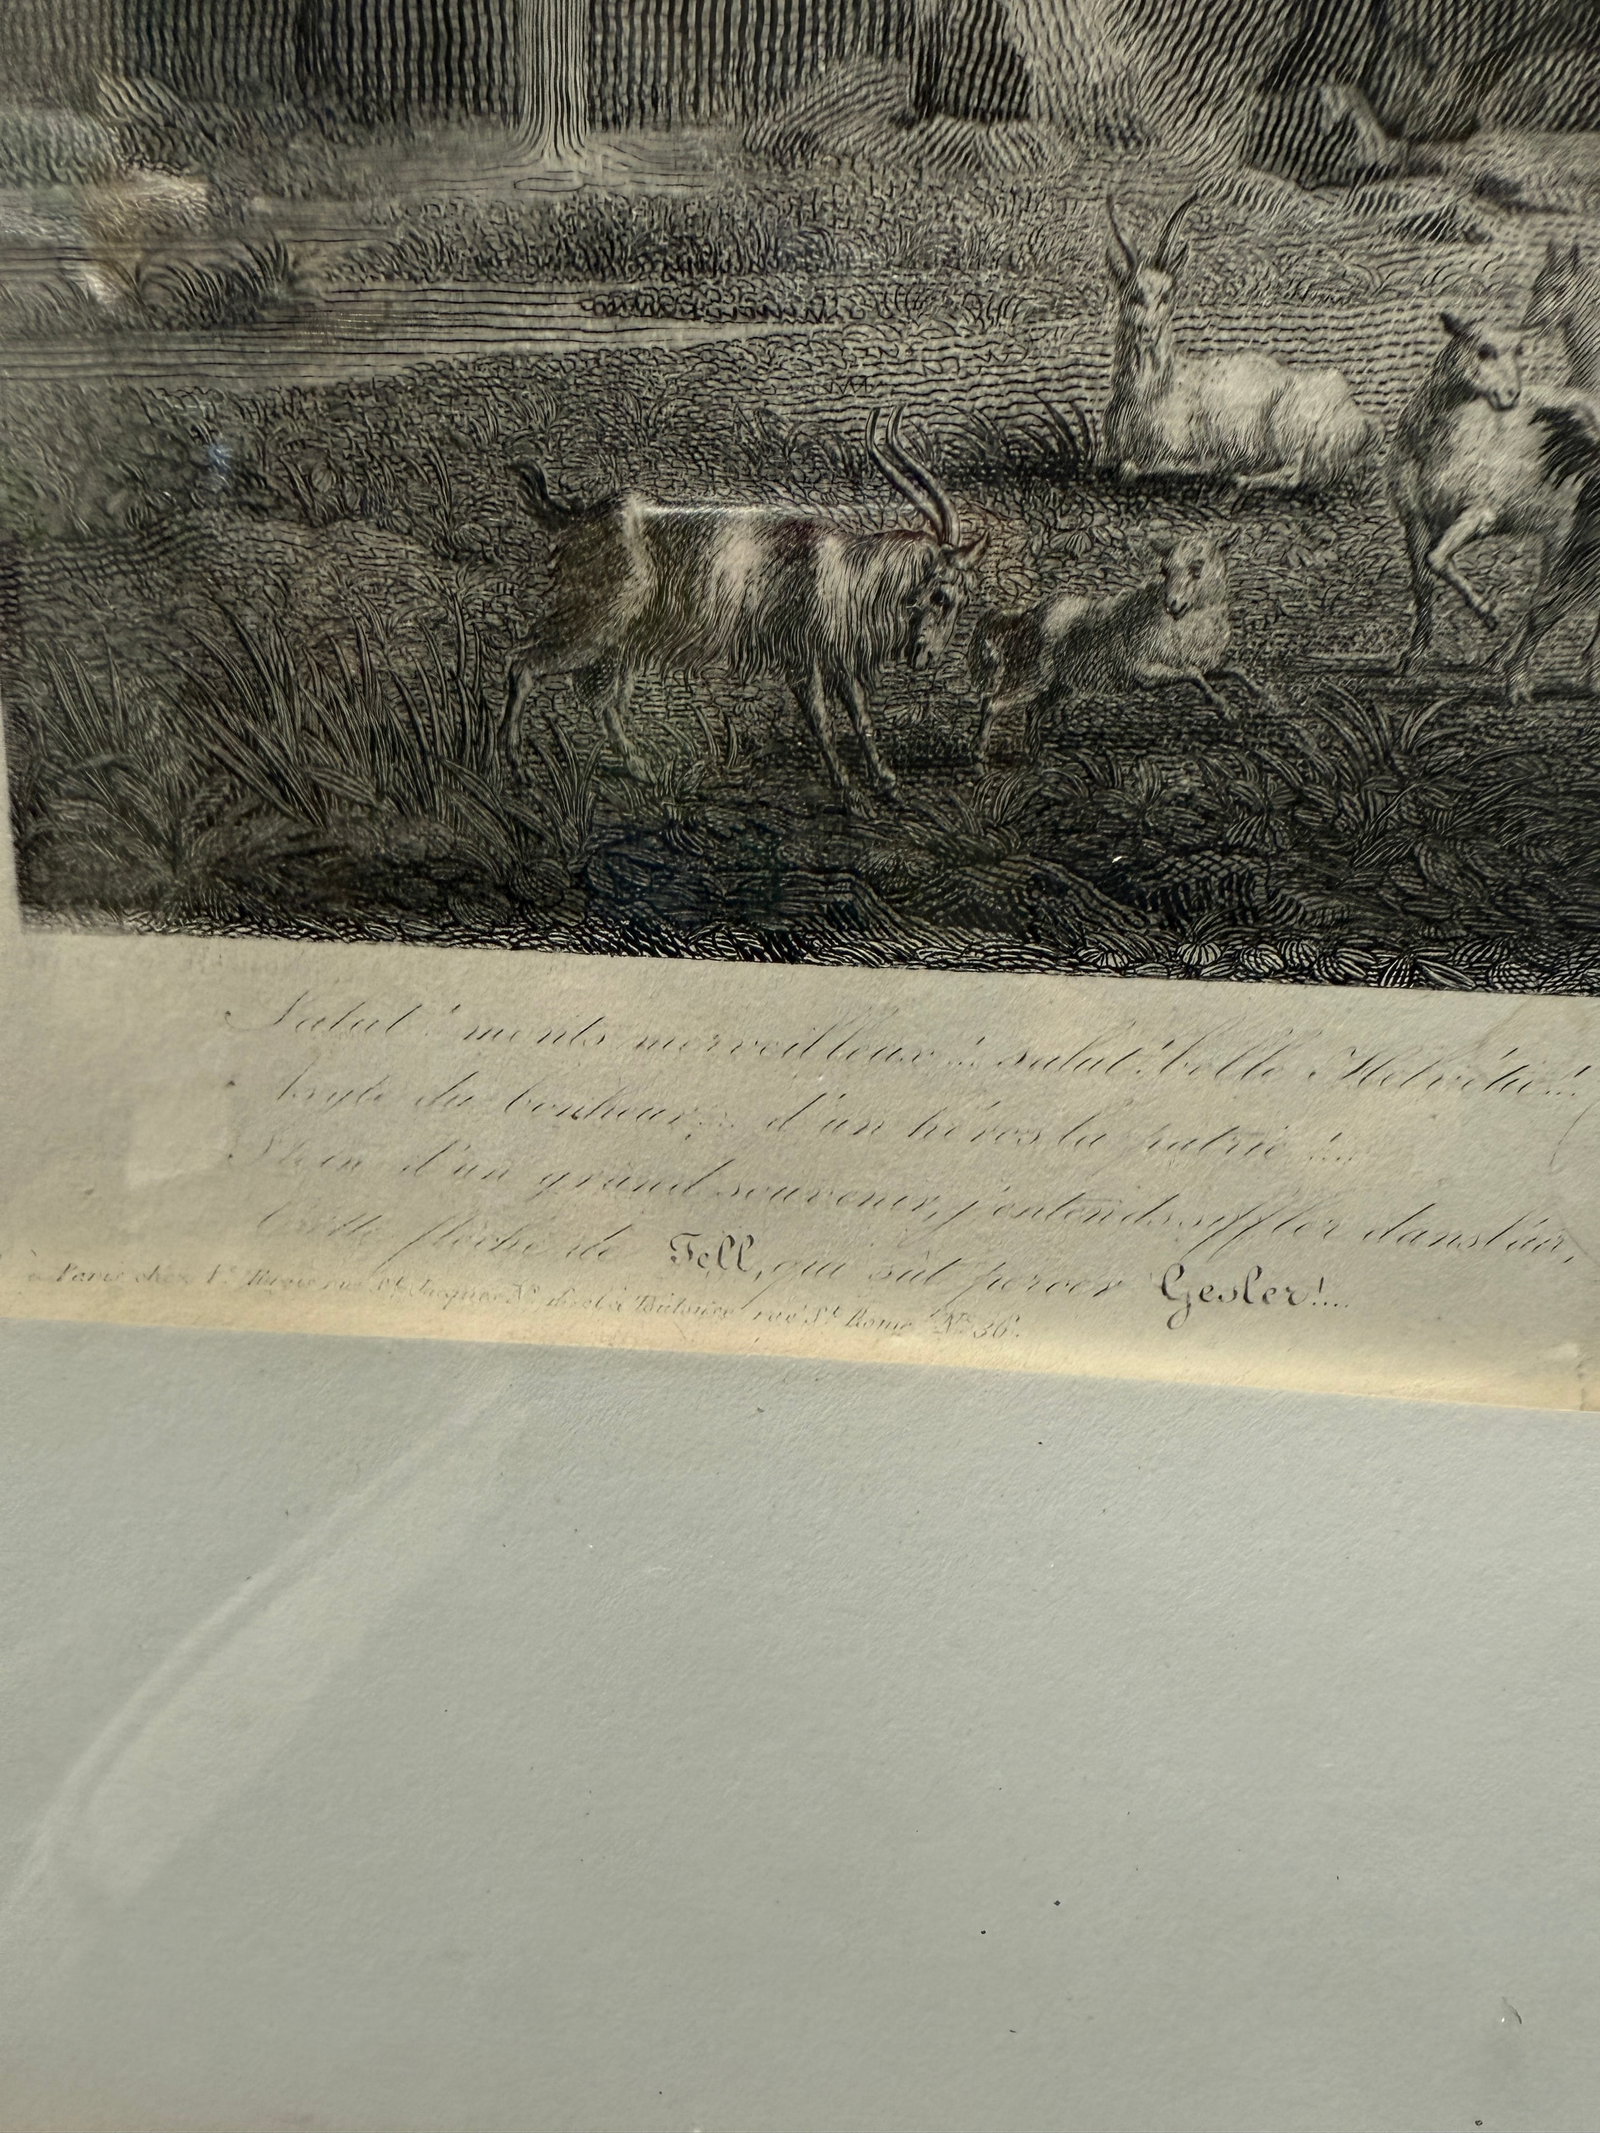 Salut! monts merveilleux!... salut! belle Helvétie!...
Asyle du bonheur, d'un héros la patrie!...
Plein d'un grand souvenir, j'entends siffler dans l'air,
Cette flèche de Tell, qui sût percer Gesler!....
à Paris chez Vr. Turgis rue St. Jacques No. et à Toulouse rue St. Rome No. 36.